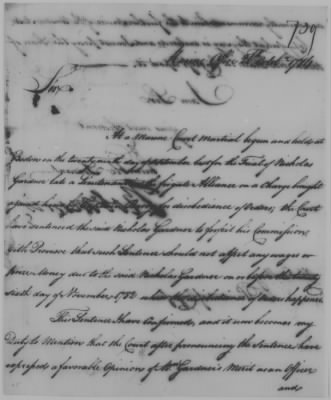 139
Marine Office March 1784
Sir
At a Marine Court Martial begun and held at
Boston on the twenty ninth day of September last for the Trial of Nicholas
Gardner late a Lieutenant frigate Alliance on a Charge brought
against him disobedience of Orders; the Court
have sentenced the said Nicholas Gardner to forfeit his Commission,
with Proviso that such Sentence should not affect any wages or
prize Money due to the said Nicholas Gardner on or before the twenty
sixth day of November, 1782 when disobedience of Orders happened
This Sentence I have Confirmed, and it now becomes my
Duty to Mention that the Court after pronouncing the Sentence have
expressed a favorable Opinion of Mr Gardner's Merit as an Officer
and